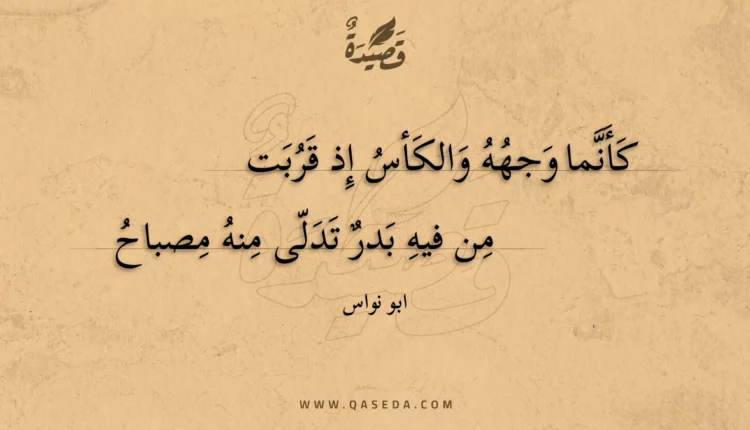 قَصِيْدَةٌ
كَأَنَّما وَجهُهُ وَالكَأسُ إِذ قَرُبَت
مِن فيهِ بَدرٌ تَدَلّى مِنهُ مِصباحُ
ابو نواس
WWW.QASEDA.COM